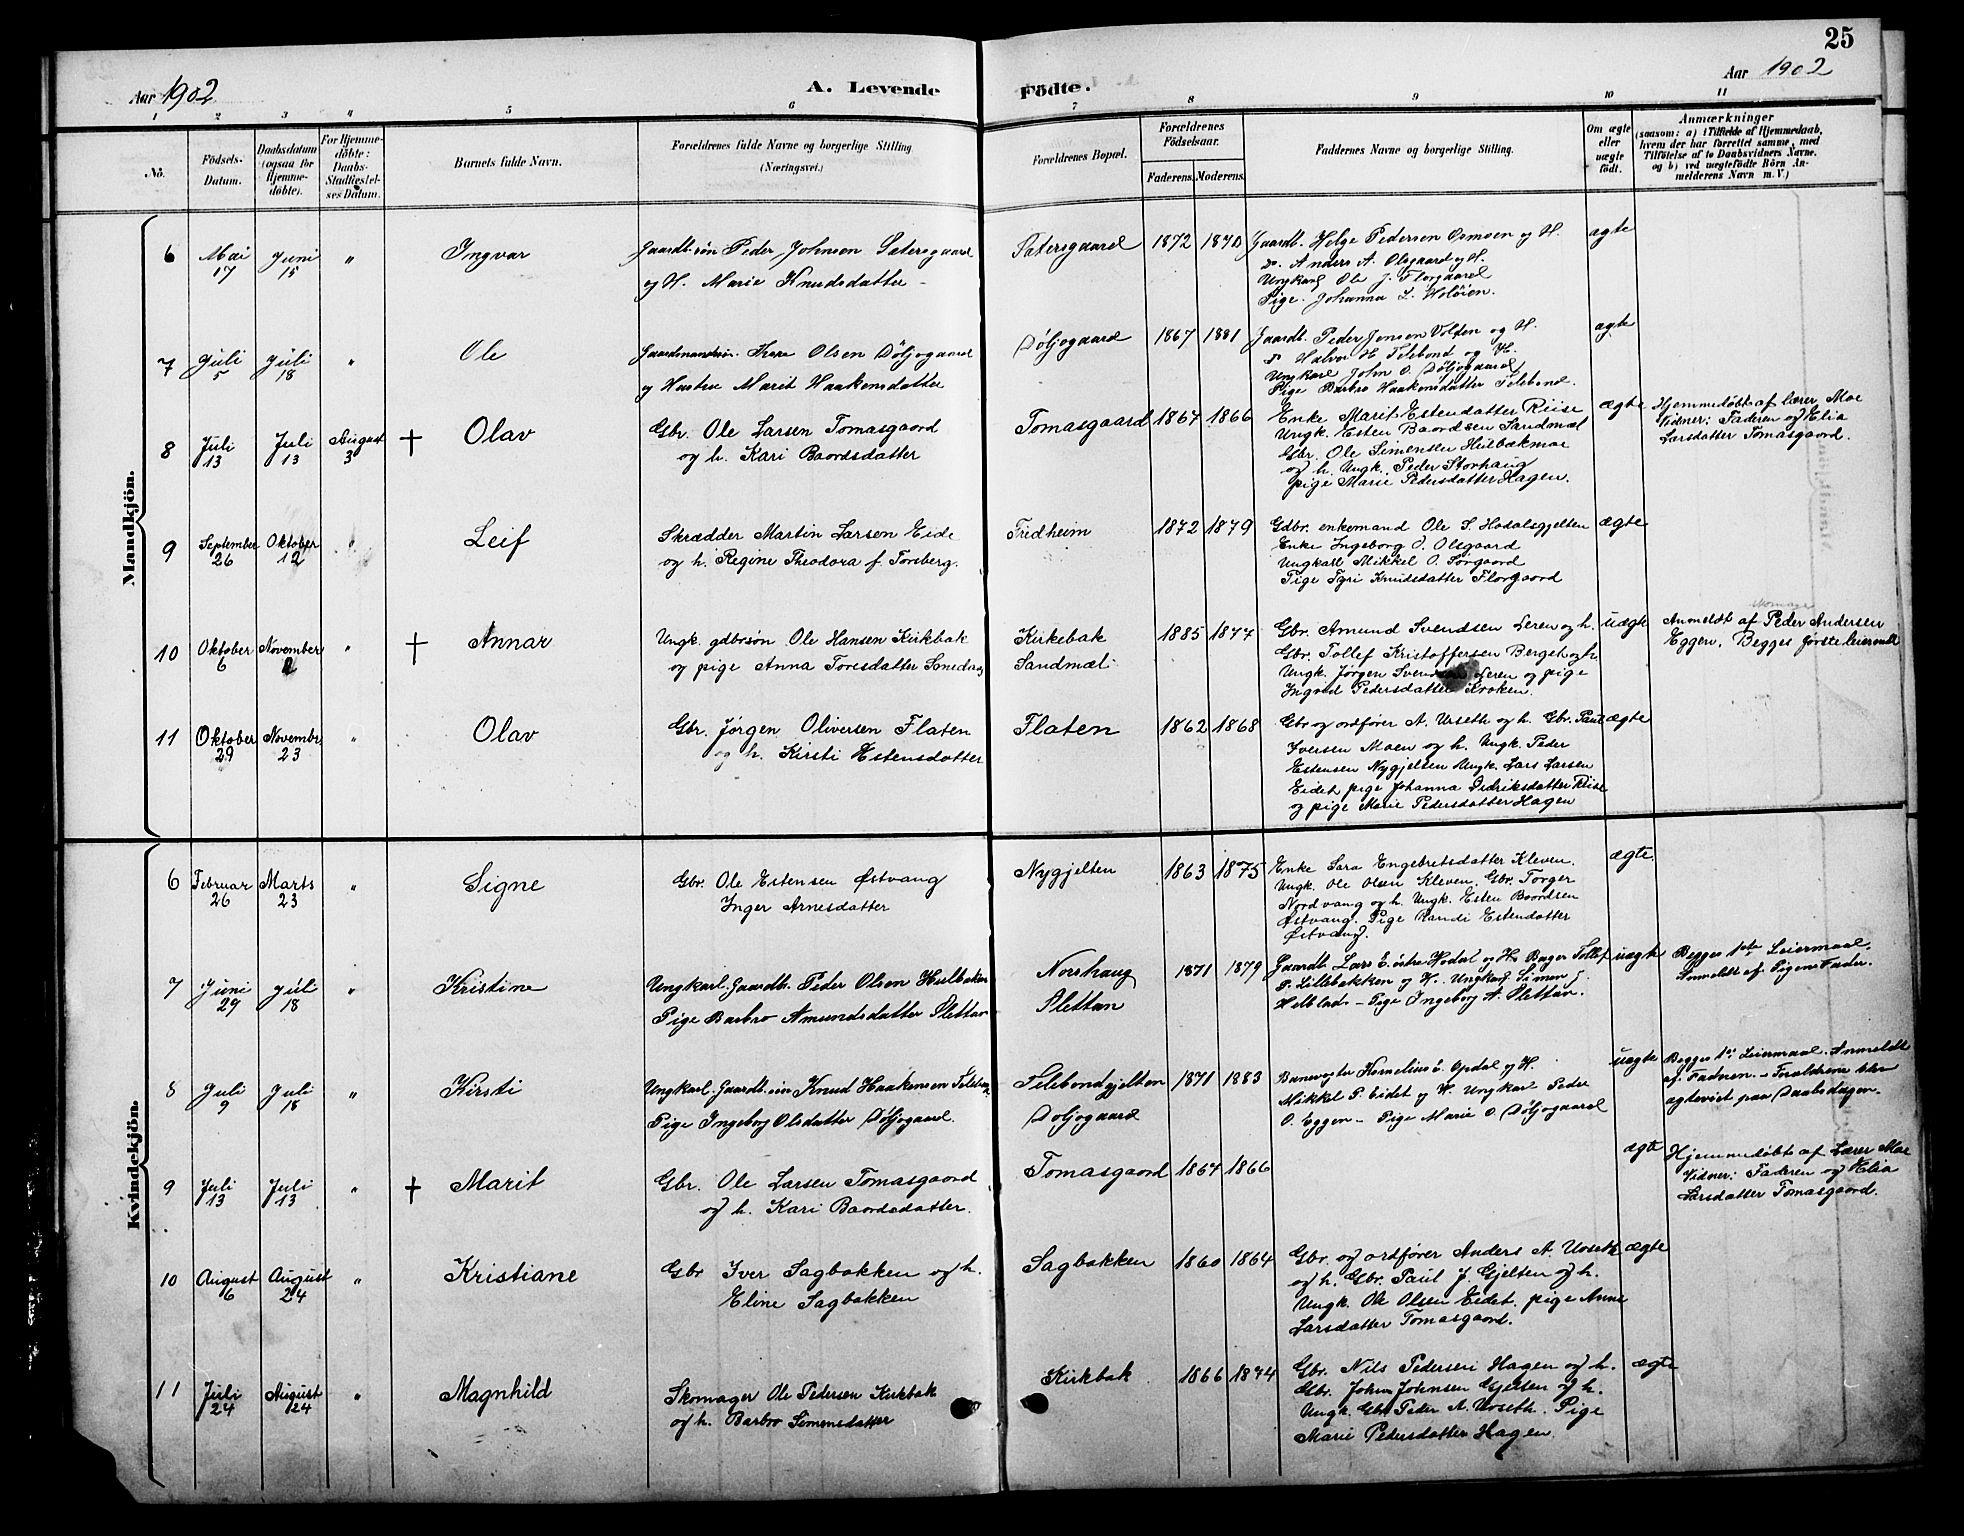 25
Aar 1902
A. Levende
Födte.
Aar 1902
1 2 3 4 5 6 7 8 9 10 11
No.
Födsels-Datum.
Daabsdatum (ogsaa for Hjemme-döbte).
For Hjemme-döbte: Daabs-Stadfæstel-ses Datum.
Barnets fulde Navn.
Forældrenes fulde Navne og borgerlige Stilling (Næringsvei.)
Forældrenes Bopæl.
Forældrenes Födselsaar.
Faderens.
Moderens.
Faddernes Navne og borgerlige Stilling.
Om ægte eller uægte födt.
Anmærkninger
(saasom: a) i Tilfælde af Hjemmedaab, hvem der har forrettet samme, med Tilföielse af to Daabsvidners Navne. og b) ved uægtefödte Börn An-melderens Navn m. V.)
Mandkjön.
6 Mai 17 Juni 15 " Ingvar
Gaardb.søn Peder Johnsen Satersgaard
og H. Marie Knudsdatter
Satersgaard 1872
Gaardb. Helge Pedersen Osmoen og H.
do. Anders A. Olsgaard og H.
Ungkarl Ole J. Florgaard
Pige Johanna L. Holöien.
ægte
7 Juli 5 Juli 18 " Ole
Olsen Döljogaard
og Hustru Marit Haakensdatter
Döljogaard 1867 1881
Gaardb. Peder Jensen Volden og H.
do. Halvor H. Telebond og H.
Ungkarl John O. Döljogaard
Pige Barbro Haakensdatter Telebond.
ægte
8 Juli 13 Juli 13 August 3 † Olav
Gbr. Ole Larsen Tomasgaard
og h. Kari Baardsdatter
Tomasgaard 1864 1866
Enke Marit Estendatter Riise
Ungk. Esten Baardsen Sandmæl
Gbr. Ole Simensen Hulbækmoe
og h. Ungk. Peder Storhaug
pige Marie Pedersdatter Hagen.
ægte
Hjemmedöbt af lærer Moe
Vidner: Faderen og Elia
Larsdatter Tomasgaard.
9 September 26 Oktober 12 " Leif
Skrædder Martin Larsen Eide
og h. Regine Theodora f. Torsberg.
Fredheim 1872 1879
Gdbr. enkemand Ole S. Hodalsgjelten
Enke Ingeborg O. Olsgaard
Ungkarl Mikkel O. Sörgaard
Pige Knudsdatter Florgaard
ægte
10 Oktober 6 November 2 " † Annar
Ungk. gdbrsön Ole Hansen Kirkbak
og pige Anna Toresdatter
Kirkebak
Sandmæl 1885 1877
Gbr. Amund Svendsen Leren og h.
Gbr. Tollef Kristoffersen Berget og h.
Ungk. Jørgen Leren og pige
Ingrid Pedersdatter Kroken.
uægte
Anmeldt af Peder Andersen
Eggen. Begges første leiermaal
11 Oktober 29 November 23 " Olav
Gbr. Jørgen Oliversen Flaten
og h. Kirsti Estensdatter
Flaten 1862 1868
Gbr og ordfører A. Urseth og h. Gbr. Paul
Iversen Moen og h. Ungk. Peder
Estensen Nygjelten Ungk. Lars Larsen
Eidet pige Johanna Didriksdatter Riise
og pige Marie Pedersdatter Hagen
ægte
Kvindekjön.
6 Februar 26 Marts 23 " Signe
Gbr. Ole Estensen Østvang
Inger Arnesdatter
Nygjelten 1863 1875
Enke Sara Engebretsdatter Kleven.
Ungk. Ole Olsen Kleven. Gbr. Torger
Nordvang og h. Ungk. Esten Baardsen
Østvang. Pige Randi Estendatter
Østvang.
ægte
7 Juni 29 Juli 18 " Kristine
Ungkarl Gaardb. Peder Olsen Hulbakken
Pige Barbro Amundsdatter Slettan
Norshaug
Slettan 1871 1879
Gaardb. Lars E. østre Hodal og H. Tollef
P. Lillebakken og H. Ungkarl Simen J.
Pige Ingeborg A. Slettan.
uægte
Begges 1ste Leiermaal.
Anmeldt af Pigens Fader.
8 Juli 9 Juli 18 " Kirsti
Ungkarl. Gaardb. søn Knud Haakensen Telebond
Pige Ingeborg Olsdatter Döljogaard.
Telebondgjelten
Döljogaard 1871 1883
Banevogter Kornelius Opdal og H.
Mikkel P. Eidet og H. Ungkarl Peder
O. Eggen – Pige Marie O. Döljogaard
uægte
Begges 1ste Leiermaal. Anmeldt
af Faderen. – Forældrene blev
ægteviet paa Daabsdagen.
9 Juli 13 Juli 13 " † Marit
Gbr. Ole Larsen Tomasgaard
og h. Kari Baardsdatter.
Tomasgaard 1864 1866
ægte
Hjemmedöbt af Lærer Moe
Vidner: Faderen og Elia
Larsdatter Tomasgaard.
10 August 6 August 24 " Kristiane
Gbr Iver Sagbakken og h.
Eline Sagbakken
Sagbakken 1860 1864
Gbr. og ordfører Anders A. Urseth
og h. Gbr. Paul J. Gjelten og h.
Ungk. Ole Olsen Eidet. pige Anne
Larsdatter Tomasgaard.
ægte
11 Juli 24 August 24 " Magnhild
Skomager Ole Pedersen Kirkbak
og h. Barbro Simensdatter
Kirkbak 1866 1874
Gbr. Nils Pedersen Hagen og h.
Gbr. John Johnsen Gjelten og h.
Ungk. Gbr. Peder A. Urseth. Pige
Marie Pedersdatter Hagen.
ægte